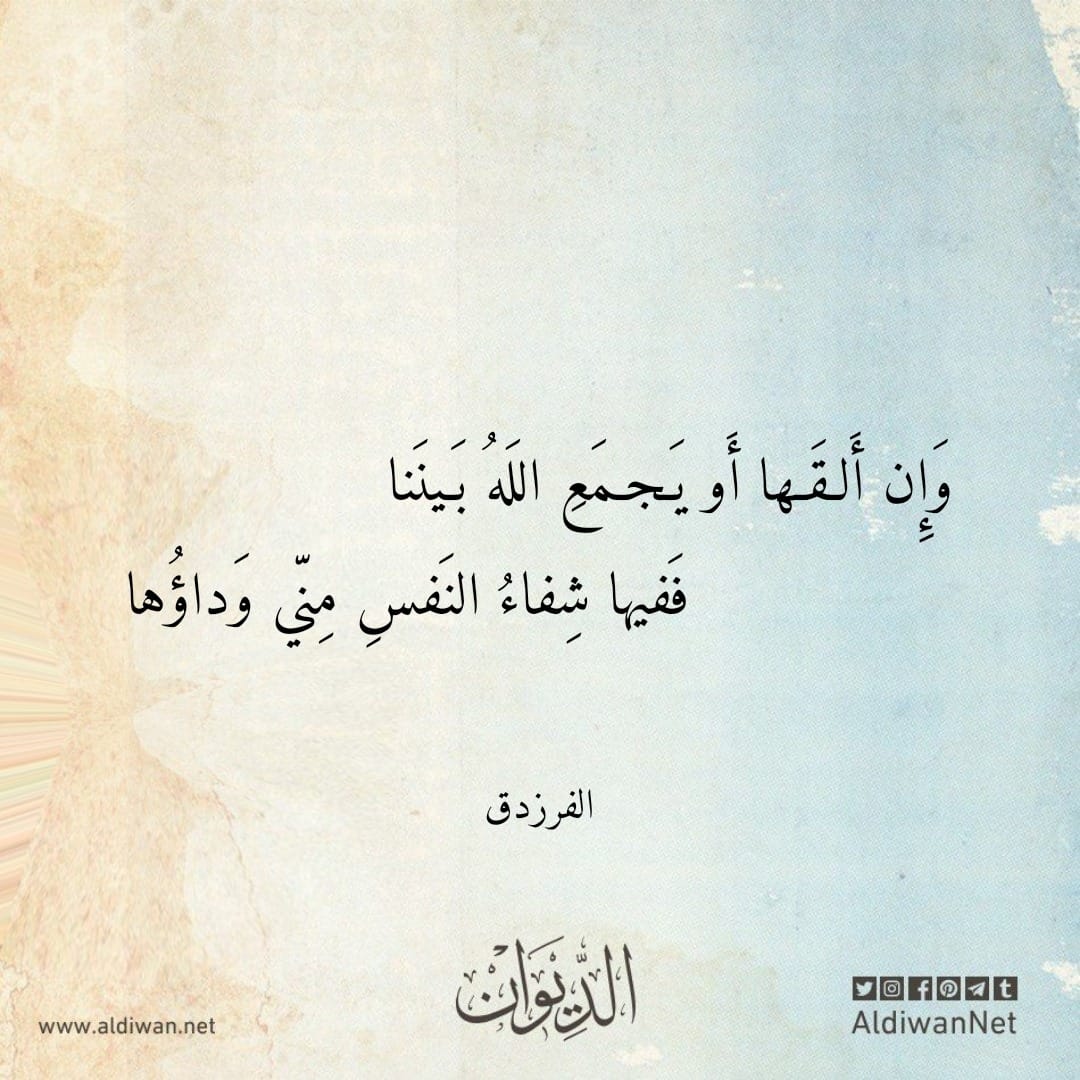 وَإِن أَلقَها أَو يَجمَعِ اللَهُ بَينَنا
فَفيها شِفاءُ النَفسِ مِنّي وَداؤُها
الفرزدق
الدِّيوَانْ
www.aldiwan.net
AldiwanNet